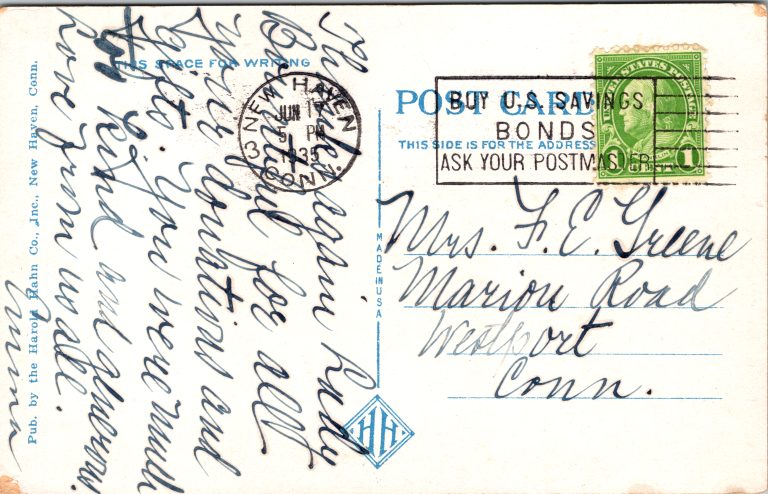 THIS SPACE FOR WRITING
Thanks again Lady
Bountiful for all
your donations and
gifts. You were much
too kind and generous.
Love from us all.
Pub. by the Harold Hahn Co., Inc., New Haven, Conn.
NEW HAVEN
JUN 17
5 PM
1935
3 CONN.
MADE IN USA
HH
POST CARD
THIS SIDE IS FOR THE ADDRESS
BUY U.S. SAVINGS
BONDS
ASK YOUR POSTMASTER
UNITED STATES POSTAGE
1
Mrs. F. E. Greene
Marion Road
Westport
Conn.